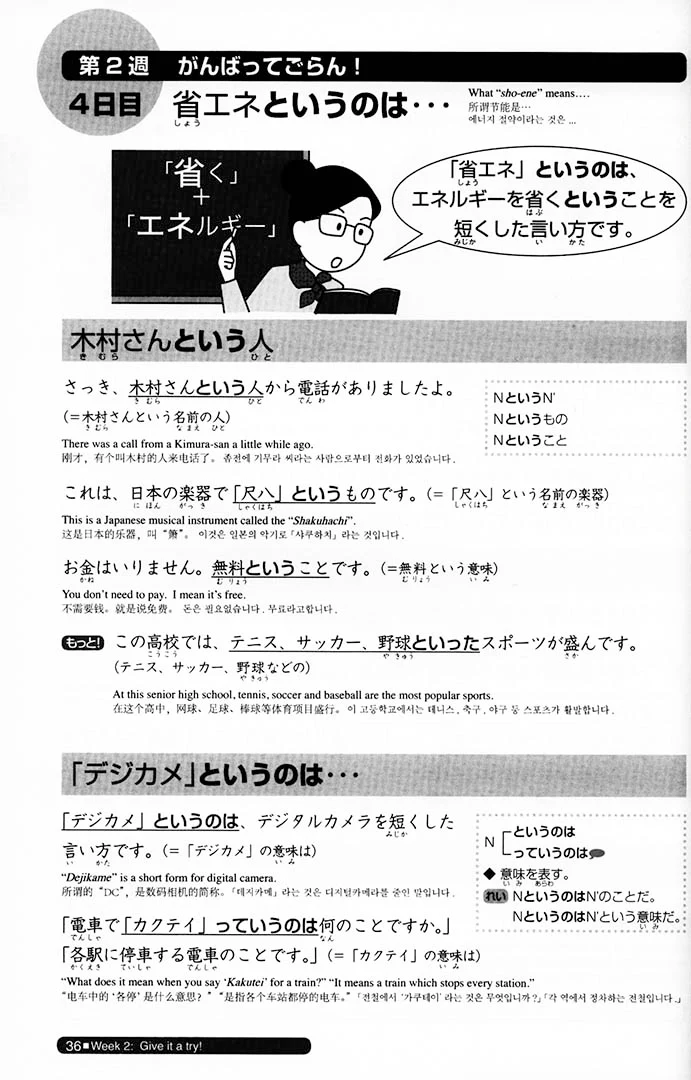 第2週 がんばってごらん！
4日目 省エネというのは・・・
しょう
What “sho-ene” means….
所谓节能是…
에너지 절약이라는 것은 ...
「省く」
+
「エネルギー」
「省エネ」というのは、
しょう
エネルギーを省くということを
はぶ
短くした言い方です。
みじか い かた
木村さんという人
きむら ひと
さっき、木村さんという人から電話がありましたよ。
きむら ひと でんわ
(=木村さんという名前の人)
きむら なまえ ひと
There was a call from a Kimura-san a little while ago.
刚才，有个叫木村的人来电话了。 좀전에 기무라 씨라는 사람으로부터 전화가 있었습니다.
NというN'
Nというもの
Nということ
これは、日本の楽器で「尺八」というものです。(=「尺八」という名前の楽器)
にほん がっき しゃくはち しゃくはち なまえ がっき
This is a Japanese musical instrument called the “Shakuhachi”.
这是日本的乐器，叫“箫”。 이것은 일본의 악기로「샤쿠하치」라는 것입니다.
お金はいりません。無料ということです。(=無料という意味)
かね むりょう むりょう いみ
You don't need to pay. I mean it's free.
不需要钱。就是说免费。 돈은 필요없습니다. 무료라고합니다.
もっと! この高校では、テニス、サッカー、野球といったスポーツが盛んです。
こうこう やきゅう さか
(テニス、サッカー、野球などの)
やきゅう
At this senior high school, tennis, soccer and baseball are the most popular sports.
在这个高中，网球、足球、棒球等体育项目盛行。 이 고등학교에서는 테니스, 축구, 야구 등 스포츠가 활발합니다.
「デジカメ」というのは・・・
「デジカメ」というのは、デジタルカメラを短くした
みじか
言い方です。(=「デジカメ」の意味は)
い かた いみ
“Dejikame” is a short form for digital camera.
所谓的“DC”，是数码相机的简称。「데지카메」라는 것은 디지털카메라를 줄인 말입니다.
N というのは
っていうのは
◆ 意味を表す。
いみ あらわ
れい NというのはN'のことだ。
NというのはN'という意味だ。
いみ
「電車で「カクテイ」っていうのは何のことですか。」
でんしゃ なん
「各駅に停車する電車のことです。」(=「カクテイ」の意味は)
かくえき ていしゃ でんしゃ いみ
“What does it mean when you say ‘Kakutei’ for a train?” “It means a train which stops every station.”
“电车中的‘各停’是什么意思？”“是指各个车站都停的电车。”「전철에서 '가쿠테이' 라는 것은 무엇입니까?」「각 역에서 정차하는 전철입니다.」
36■Week 2: Give it a try!